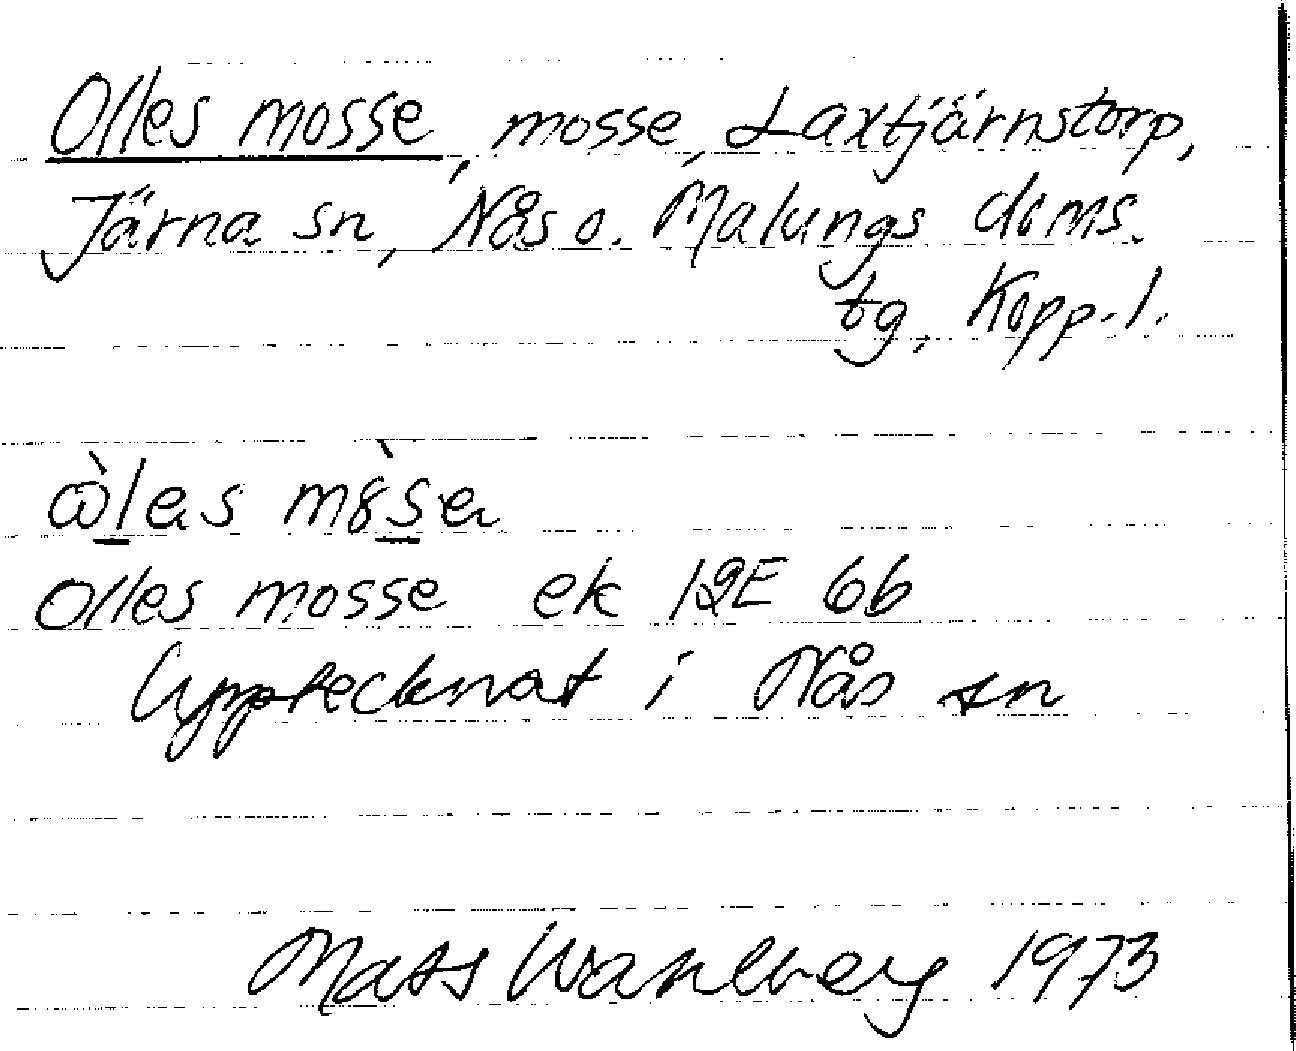 Olles mosse, mosse, Laxtjärnstorp,
Järna sn, Nås o. Malungs doms.
tg, Kopp. l.
ὼl̲es m8̀s̲e
Olles mosse ek 12E 6b
Upptecknat i Nås sn
Mats Wahlberg 1973